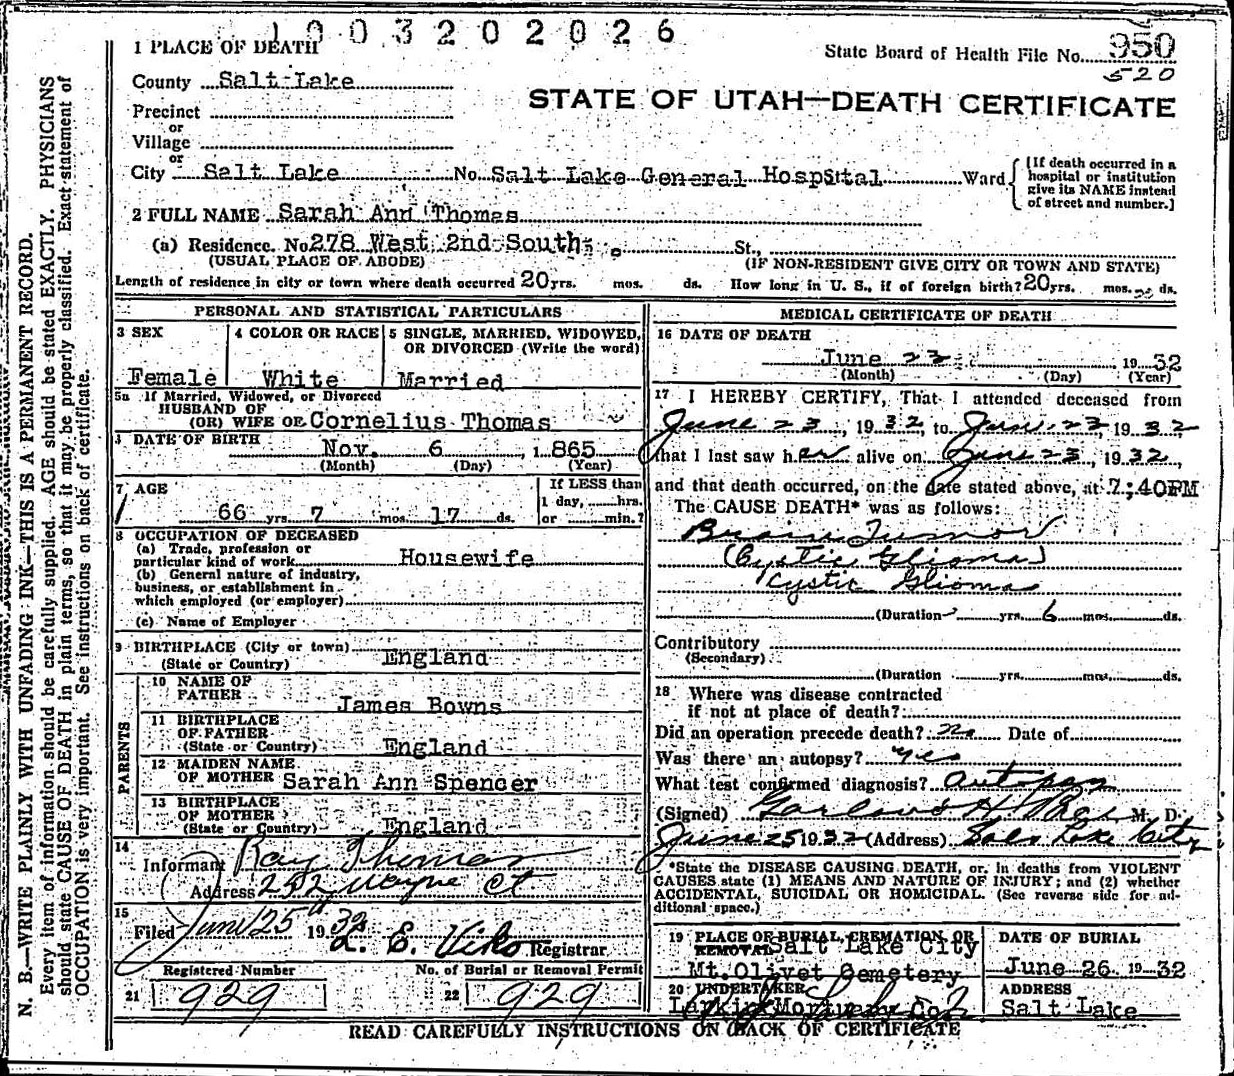 1003202026
1 PLACE OF DEATH
State Board of Health File No. 950
520
County Salt Lake
STATE OF UTAH—DEATH CERTIFICATE
Precinct
or
Village
or
City Salt Lake No. Salt Lake General Hospital Ward
[If death occurred in a hospital or institution give its NAME instead of street and number.]
2 FULL NAME Sarah Ann Thomas
(a) Residence. No. 278 West 2nd South St.,
(USUAL PLACE OF ABODE) (IF NON-RESIDENT GIVE CITY OR TOWN AND STATE)
Length of residence in city or town where death occurred 20 yrs. mos. ds. How long in U. S., if of foreign birth? 20 yrs. mos. ds.
PERSONAL AND STATISTICAL PARTICULARS
3 SEX Female
4 COLOR OR RACE White
5 SINGLE, MARRIED, WIDOWED, OR DIVORCED (Write the word) Married
5a If Married, Widowed, or Divorced
HUSBAND OF
(OR) WIFE OF Cornelius Thomas
DATE OF BIRTH Nov. 6, 1865
(Month) (Day) (Year)
7 AGE
66 yrs. 7 mos. 17 ds.
If LESS than
1 day, hrs.
or min.?
8 OCCUPATION OF DECEASED
(a) Trade, profession or
particular kind of work Housewife
(b) General nature of industry,
business, or establishment in
which employed (or employer)
(c) Name of Employer
9 BIRTHPLACE (City or town)
(State or Country) England
PARENTS
10 NAME OF
FATHER James Bowns
11 BIRTHPLACE
OF FATHER
(State or Country) England
12 MAIDEN NAME
OF MOTHER Sarah Ann Spencer
13 BIRTHPLACE
OF MOTHER
(State or Country) England
14
Informant Ray Thomas
Address 252 Wayne Ct
15
Filed June 25th 1932 L. E. Viko Registrar
Registered Number No. of Burial or Removal Permit
21 929 22 929
MEDICAL CERTIFICATE OF DEATH
16 DATE OF DEATH
June 23 1932
(Month) (Day) (Year)
17 I HEREBY CERTIFY, That I attended deceased from
June 23, 1932, to June 23, 1932
that I last saw her alive on June 23, 1932,
and that death occurred, on the date stated above, at 7:40PM
The CAUSE DEATH* was as follows:
Brain Tumor
(Cystic Glioma)
Cystic Glioma
(Duration yrs. 6 mos. ds.
Contributory
(Secondary)
(Duration yrs. mos. ds.
18 Where was disease contracted
if not at place of death?
Did an operation precede death? no Date of
Was there an autopsy? yes
What test confirmed diagnosis? autopsy
(Signed) Garland H. M. D.
June 25 1932 (Address) Salt Lake City
*State the DISEASE CAUSING DEATH, or, in deaths from VIOLENT
CAUSES state (1) MEANS AND NATURE OF INJURY; and (2) whether
ACCIDENTAL, SUICIDAL OR HOMICIDAL. (See reverse side for ad-
ditional space.)
19 PLACE OF BURIAL, CREMATION, OR
REMOVAL Salt Lake City
Mt. Olivet Cemetery
DATE OF BURIAL
June 26 1932
20 UNDERTAKER
Larkin Mortuary Co.
ADDRESS
Salt Lake
READ CAREFULLY INSTRUCTIONS ON BACK OF CERTIFICATE
N. B.—WRITE PLAINLY WITH UNFADING INK—THIS IS A PERMANENT RECORD.
Every item of information should be carefully supplied. AGE should be stated EXACTLY. PHYSICIANS
should state CAUSE OF DEATH in plain terms, so that it may be properly classified. Exact statement of
OCCUPATION is very important. See instructions on back of certificate.